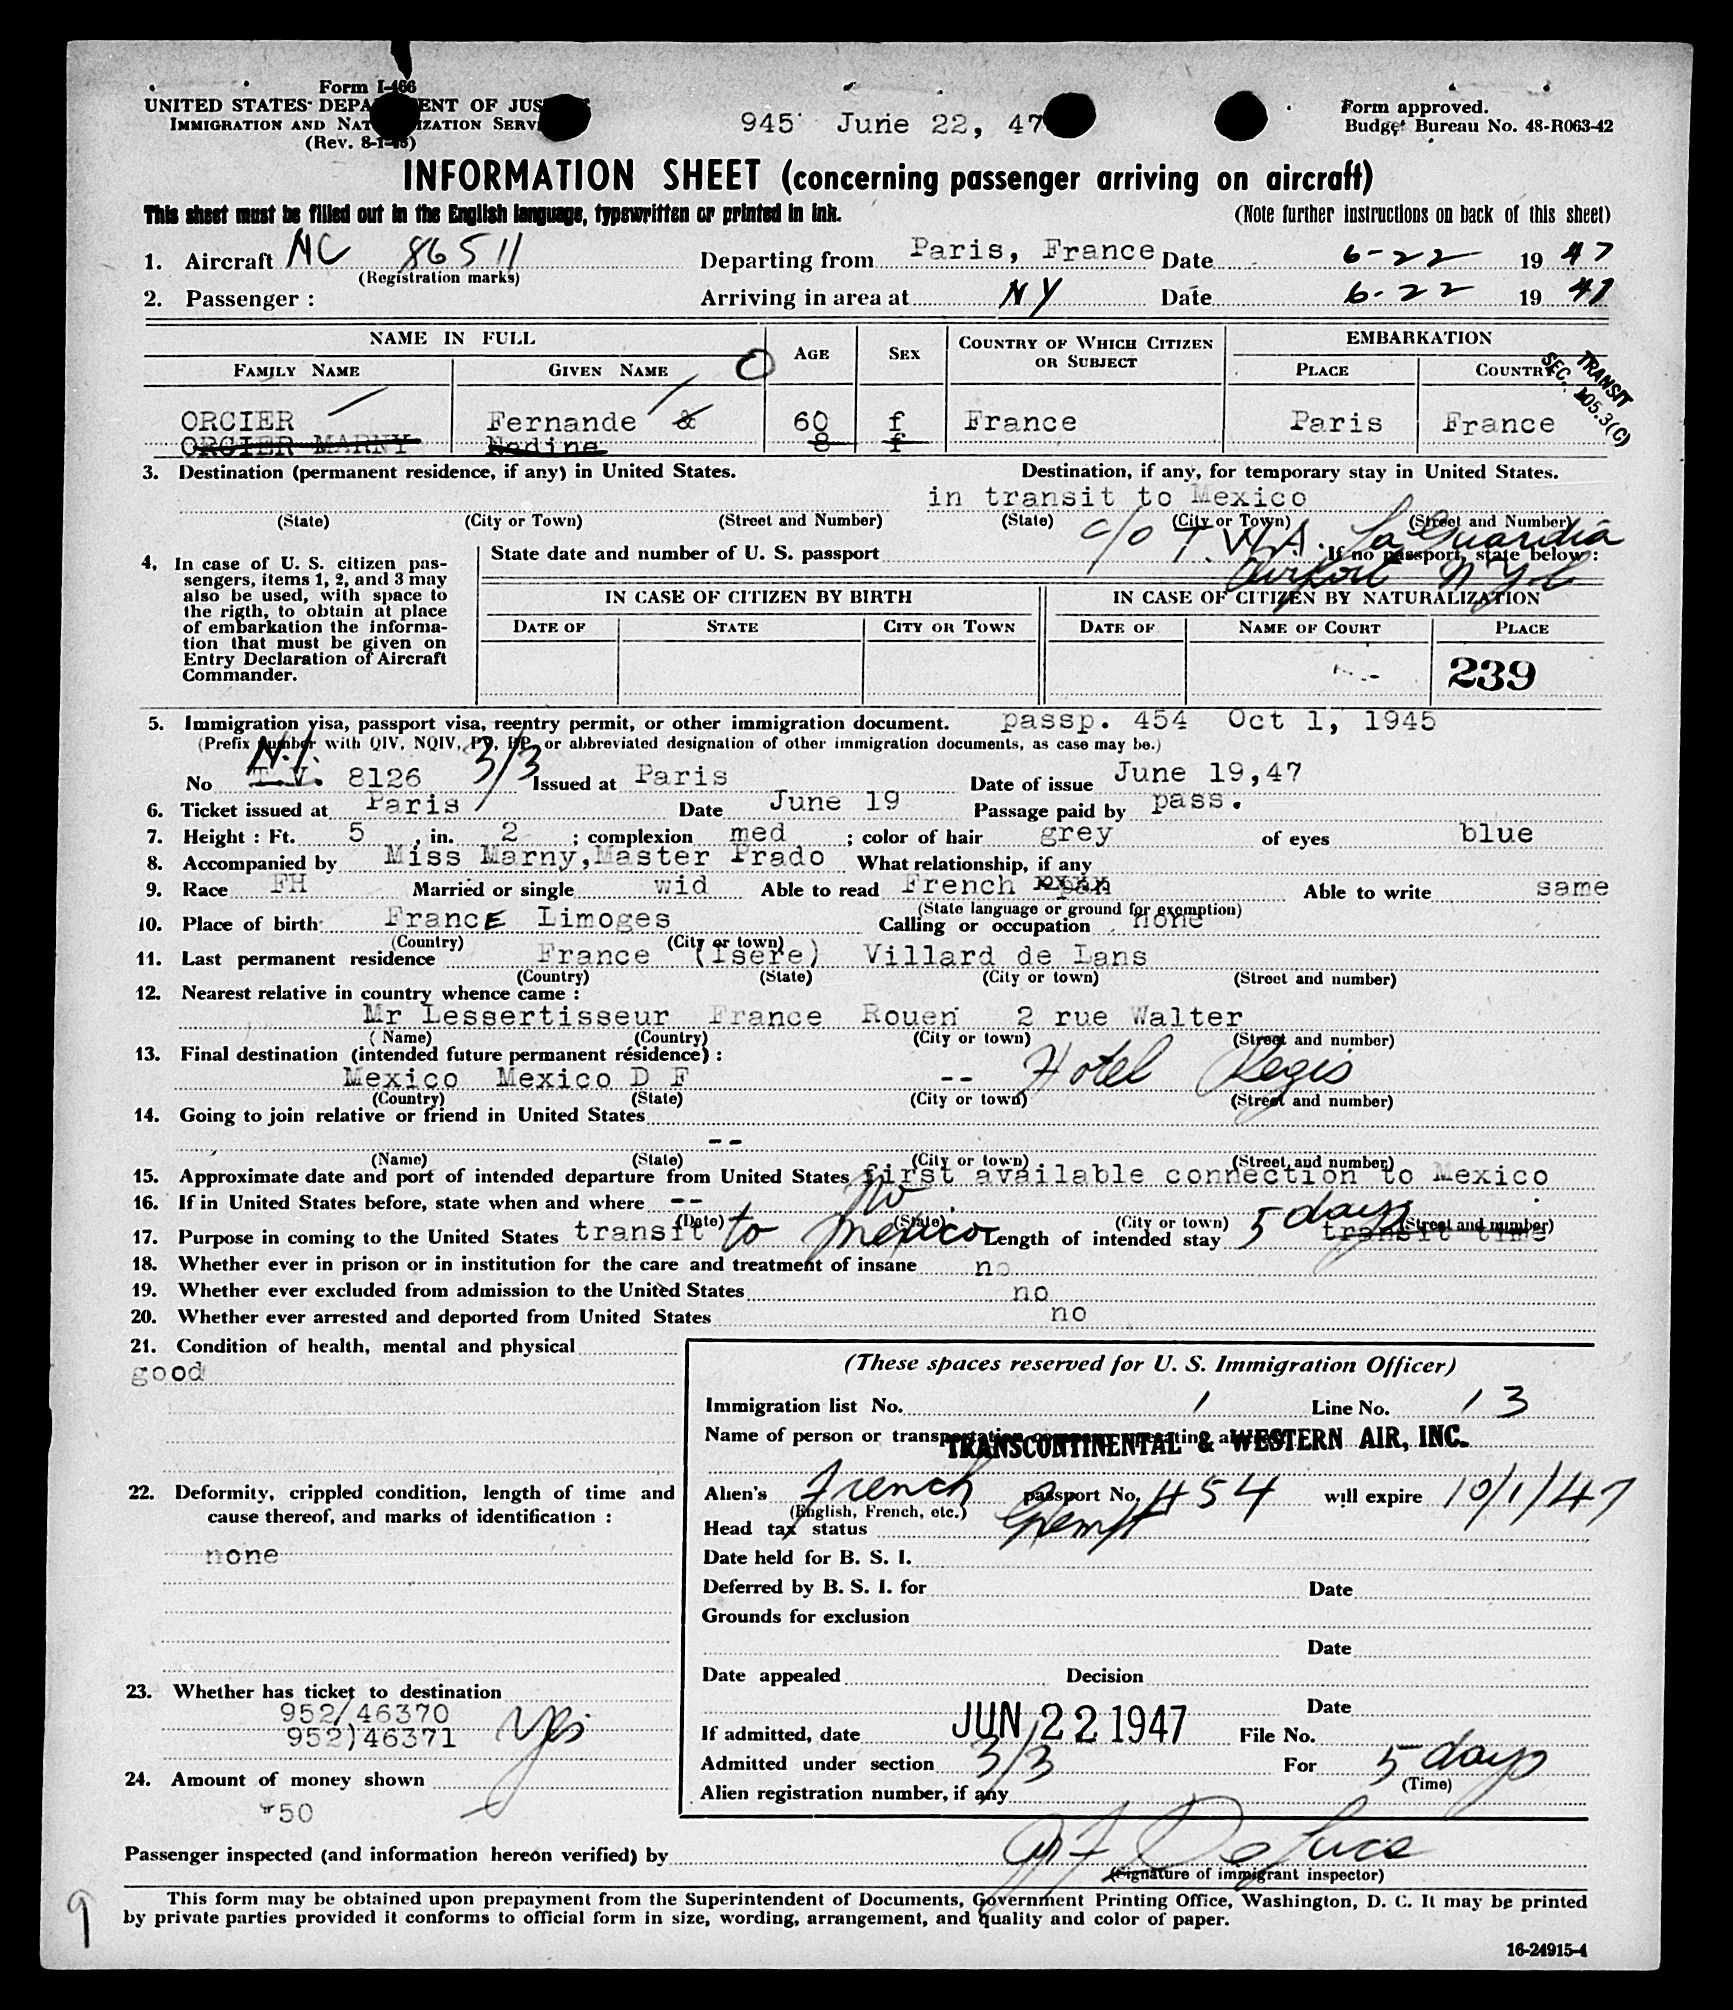 Form I-466
UNITED STATES DEPARTMENT OF JUSTICE
IMMIGRATION AND NATURALIZATION SERVICE
(Rev. 8-1-45)
945 June 22, 47
Form approved.
Budget Bureau No. 48-R063-42
INFORMATION SHEET (concerning passenger arriving on aircraft)
This sheet must be filled out in the English language, typewritten or printed in ink.
(Note further instructions on back of this sheet)
1. Aircraft NC 86511 Departing from Paris, France Date 6-22 19 47
(Registration marks)
2. Passenger : Arriving in area at NY Date 6-22 19 47
NAME IN FULL
AGE SEX COUNTRY OF WHICH CITIZEN OR SUBJECT EMBARKATION
FAMILY NAME GIVEN NAME O PLACE COUNTRY
TRANSIT
SEC. 105.3(C)
ORCIER Fernande & 60 f France Paris France
ORCIER MARNY Nadine 8 f
3. Destination (permanent residence, if any) in United States. Destination, if any, for temporary stay in United States.
in transit to Mexico
(State) (City or Town) (Street and Number) (State) (City or Town) (Street and Number)
c/o T.W.A. La Guardia
Airport NYC
4. In case of U. S. citizen pas-
sengers, items 1, 2, and 3 may
also be used, with space to
the rigth, to obtain at place
of embarkation the informa-
tion that must be given on
Entry Declaration of Aircraft
Commander.
State date and number of U. S. passport If no passport, state below :
IN CASE OF CITIZEN BY BIRTH IN CASE OF CITIZEN BY NATURALIZATION
DATE OF STATE CITY OR TOWN DATE OF NAME OF COURT PLACE
239
5. Immigration visa, passport visa, reentry permit, or other immigration document. passp. 454 Oct 1, 1945
(Prefix number with QIV, NQIV, PV, RP, or abbreviated designation of other immigration documents, as case may be.)
N.I.
No T.V. 8126 3/3 Issued at Paris Date of issue June 19,47
6. Ticket issued at Paris Date June 19 Passage paid by pass.
7. Height : Ft. 5 , in. 2 ; complexion med ; color of hair grey of eyes blue
8. Accompanied by Miss Marny,Master Prado What relationship, if any
9. Race FH Married or single wid Able to read French Able to write same
(State language or ground for exemption)
10. Place of birth France Limoges Calling or occupation none
(Country) (City or town)
11. Last permanent residence France (Isere) Villard de Lans
(Country) (State) (City or town) (Street and number)
12. Nearest relative in country whence came :
Mr Lessertisseur France Rouen 2 rue Walter
(Name) (Country) (City or town) (Street and number)
13. Final destination (intended future permanent résidence) :
Mexico Mexico D F -- Hotel Regis
(Country) (State) (City or town) (Street and number)
14. Going to join relative or friend in United States
--
(Name) (State) (City or town) (Street and number)
15. Approximate date and port of intended departure from United States first available connection to Mexico
16. If in United States before, state when and where -- No
(Date) (State) (City or town) (Street and number)
17. Purpose in coming to the United States transit to Mexico Length of intended stay 5 days transit time
18. Whether ever in prison or in institution for the care and treatment of insane no
19. Whether ever excluded from admission to the United States no
20. Whether ever arrested and deported from United States no
21. Condition of health, mental and physical
good
22. Deformity, crippled condition, length of time and
cause thereof, and marks of identification :
none
23. Whether has ticket to destination
952/46370
952)46371 yes
24. Amount of money shown
50
(These spaces reserved for U. S. Immigration Officer)
Immigration list No. 1 Line No. 13
Name of person or transportation company operating aircraft
TRANSCONTINENTAL & WESTERN AIR, INC.
Alien's French passport No. 454 will expire 10/1/47
(English, French, etc.)
Head tax status Exempt
Date held for B. S. I.
Deferred by B. S. I. for Date
Grounds for exclusion
Date
Date appealed Decision
Date
If admitted, date JUN 22 1947 File No.
Admitted under section 3/3 For 5 days
(Time)
Alien registration number, if any
Passenger inspected (and information hereon verified) by
(Signature of immigrant inspector)
This form may be obtained upon prepayment from the Superintendent of Documents, Government Printing Office, Washington, D. C. It may be printed
by private parties provided it conforms to official form in size, wording, arrangement, and quality and color of paper.
9
16-24915-4